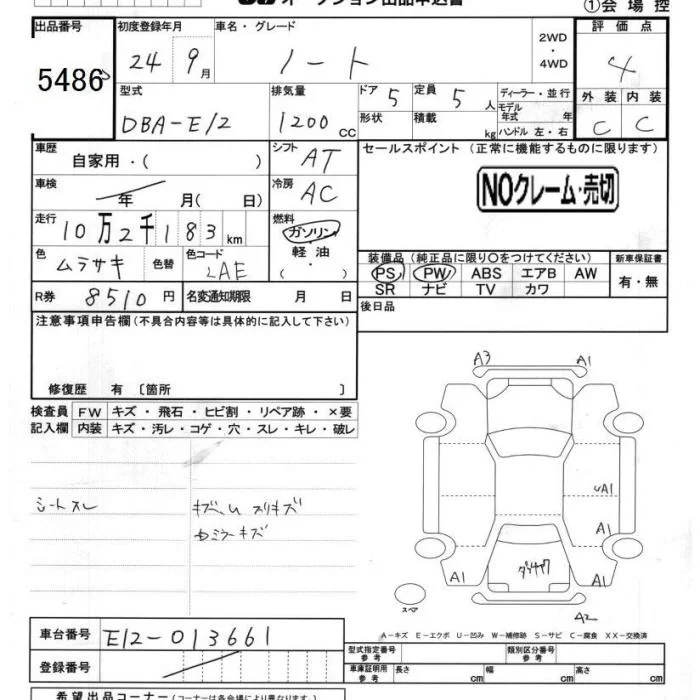 オークション出品申込書
①会場控
出品番号 初度登録年月 車名・グレード 2WD・4WD 評価点
5486 24 9月 ノート 4
型式 排気量 ドア 5 定員 5人 ディーラー・並行 外装 内装
DBA-E12 1200cc 形状 積載 kg モデル年式 年 C C
ハンドル 左・右
車歴 自家用・( ) シフト AT セールスポイント (正常に機能するものに限ります)
車検 年 月( 日) 冷房 AC NOクレーム・売切
走行 10万2千183km 燃料 ガソリン・軽油・( )
色 ムラサキ 色替 色コード LAE
装備品 (純正品に限り○をつけてください) 新車保証書
PS PW ABS エアB AW 有・無
SR ナビ TV カワ
R券 8510円 名変通知期限 月 日 後日品
注意事項申告欄 (不具合内容等は具体的に記入して下さい)
修復歴 有 〔箇所 〕
検査員 FW キズ・飛石・ヒビ割・リペア跡・×要
記入欄 内装 キズ・汚レ・コゲ・穴・スレ・キレ・破レ
シートスレ
A3 A1
A1
A1
A1 A1
A2
スペア
A-キズ E-エクボ U-凹み W-補修跡 S-サビ C-腐食 XX-交換済
車台番号 E12-013661
登録番号
型式指定番号 参考 類別区分番号 参考
車庫証明用 参考 長さ cm 幅 cm 高さ cm
希望出品コーナー (コーナーは各会場により異なります)